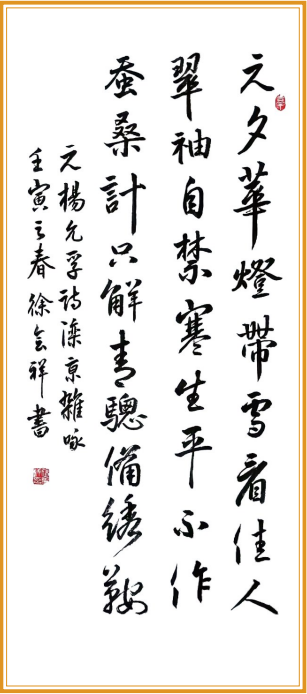 元夕華燈帶雪看佳人
翠袖自禁寒生平不作
蚕桑計只解青驄備綉鞍
元楊允孚詩滦京雜咏
壬寅之春徐会祥書